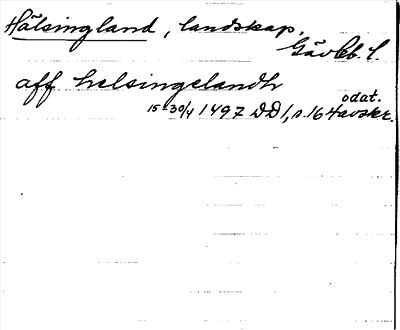 Hälsingland, landskap,
Gävleb. l.
aff helsingelandh
odat.
15-30/4 1497 DD1, s. 164 avskr.